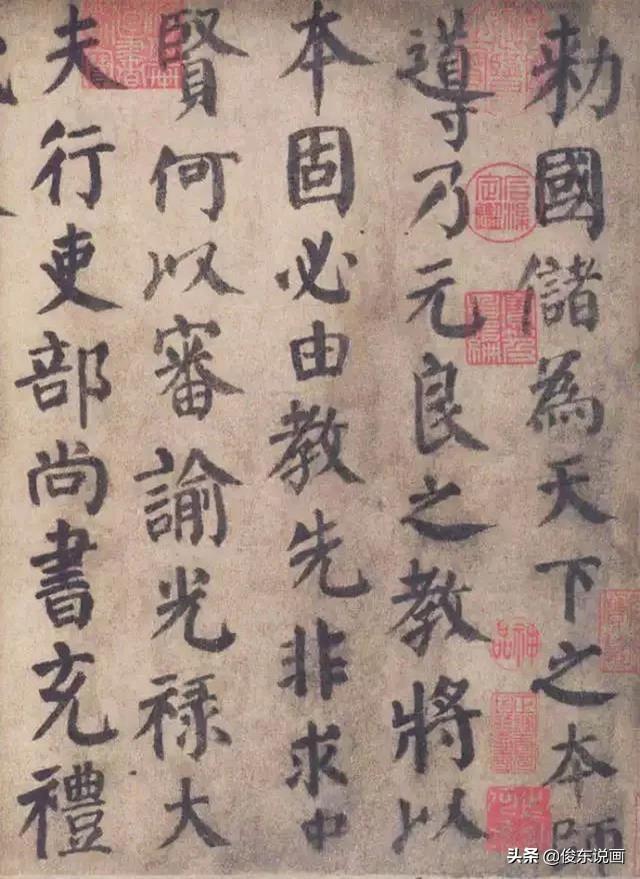 勑國儲為天下之本師
導乃元良之教將以
本固必由教先非求中
賢何以審諭光祿大
夫行吏部尚書充禮
神品
头条 @俊东说画